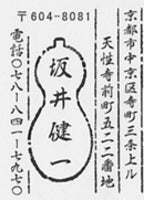 〒604-8081
京都市中京区寺町三条上ル
天性寺前町五二二番地
坂井健一
電話〇七八-八四一-一九七〇